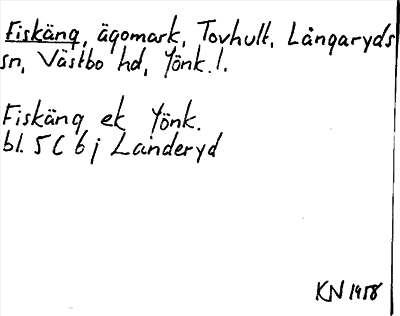 Fiskäng, ägomark, Tovhult, Långaryds
sn, Västbo hd, Jönk. l.
Fiskäng ek Jönk.
bl. 5C 6j Landeryd
KN 1958